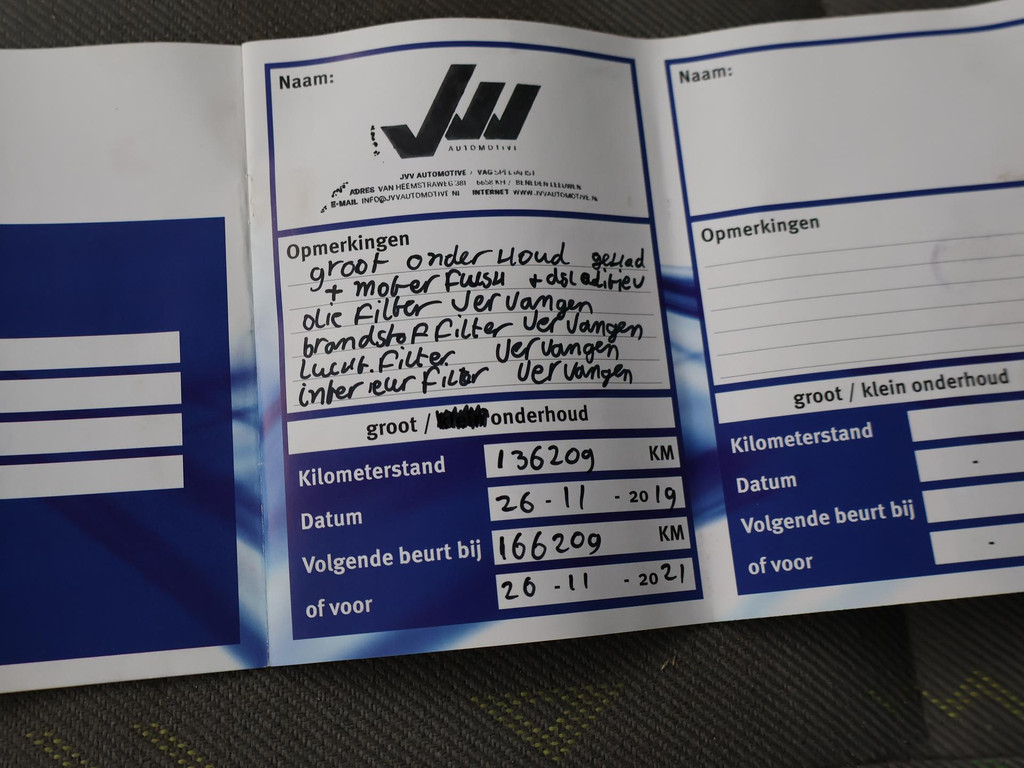 Naam:
JVV
AUTOMOTIVE
JVV AUTOMOTIVE / VAG
ADRES VAN HEEMSTRAWEG 6658 KH / BENEDEN LEEUWEN
E-MAIL INFO@JVVAUTOMOTIVE.NL INTERNET WWW.JVVAUTOMOTIVE.NL
Opmerkingen
groot onderhoud gehad
+ moter Flush + dsl aditiev
olie Filter Vervangen
brandstof Filter Vervangen
Lucht. Filter Vervangen
interieur filter Vervangen
groot / onderhoud
Kilometerstand 136209 KM
Datum 26 - 11 - 2019
Volgende beurt bij 166209 KM
of voor 26 - 11 - 2021
Naam:
Opmerkingen
groot / klein onderhoud
Kilometerstand
Datum -
Volgende beurt bij
of voor -